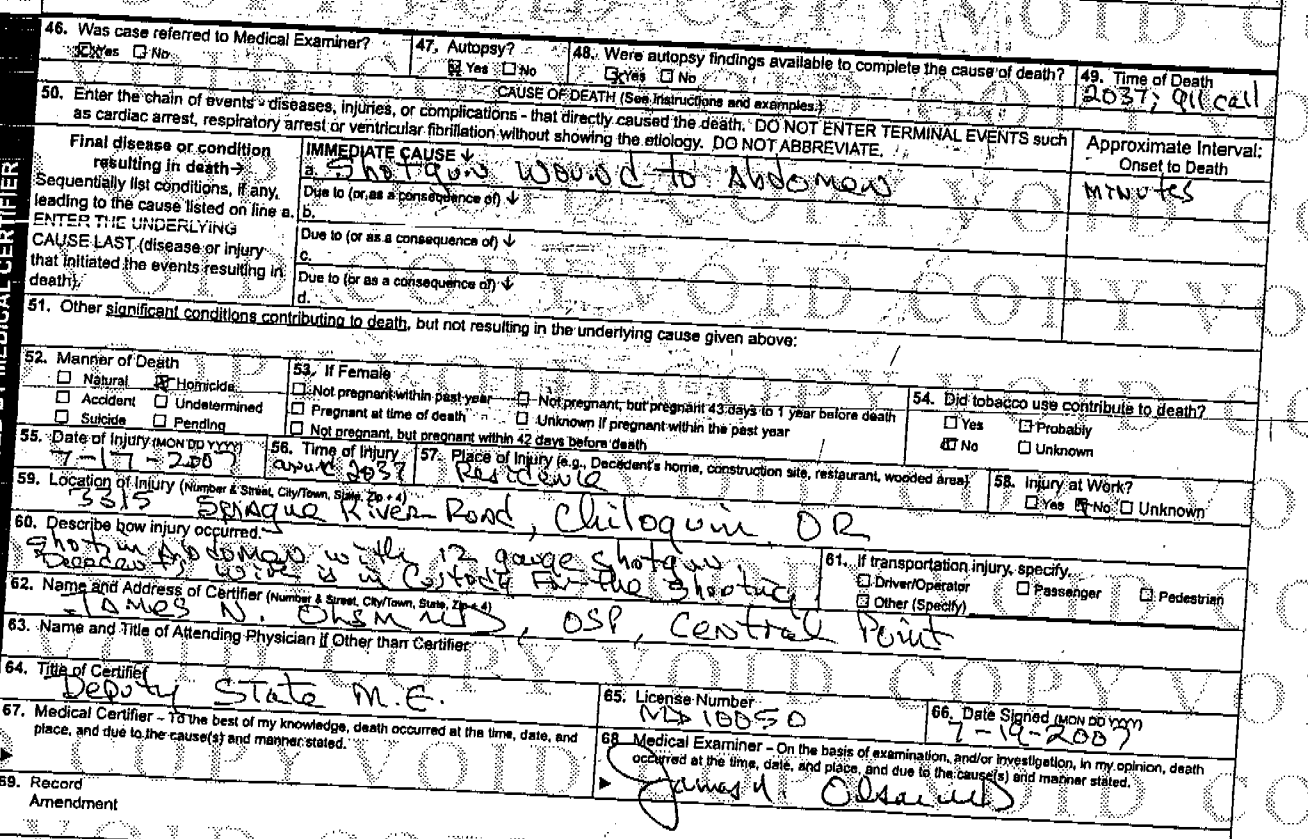 46. Was case referred to Medical Examiner?
☒ Yes ☐ No
47. Autopsy?
☒ Yes ☐ No
48. Were autopsy findings available to complete the cause of death?
☒ Yes ☐ No
49. Time of Death
2037; 911 call
CAUSE OF DEATH (See instructions and examples.)
50. Enter the chain of events - diseases, injuries, or complications - that directly caused the death. DO NOT ENTER TERMINAL EVENTS such
as cardiac arrest, respiratory arrest or ventricular fibrillation without showing the etiology. DO NOT ABBREVIATE.
Approximate Interval:
Onset to Death
Final disease or condition
resulting in death→
Sequentially list conditions, if any,
leading to the cause listed on line a.
ENTER THE UNDERLYING
CAUSE LAST (disease or injury
that initiated the events resulting in
death).
IMMEDIATE CAUSE ↓
a. Shotgun Wound to Abdomen
Minutes
Due to (or as a consequence of) ↓
b.
Due to (or as a consequence of) ↓
c.
Due to (or as a consequence of) ↓
d.
51. Other significant conditions contributing to death, but not resulting in the underlying cause given above:
52. Manner of Death
☐ Natural ☒ Homicide
☐ Accident ☐ Undetermined
☐ Suicide ☐ Pending
53. If Female
☐ Not pregnant within past year ☐ Not pregnant, but pregnant 43 days to 1 year before death
☐ Pregnant at time of death ☐ Unknown if pregnant within the past year
☐ Not pregnant, but pregnant within 42 days before death
54. Did tobacco use contribute to death?
☐ Yes ☐ Probably
☒ No ☐ Unknown
55. Date of Injury (MON DD YYYY)
7-17-2007
56. Time of Injury
around 2037
57. Place of Injury (e.g., Decedent's home, construction site, restaurant, wooded area)
Residence
58. Injury at Work?
☐ Yes ☒ No ☐ Unknown
59. Location of Injury (Number & Street, City/Town, State, Zip + 4)
3315 Sprague River Road, Chiloquin, OR
60. Describe how injury occurred.
Shot in Abdomen with 12 gauge shotgun.
Decedent's wife is in Custody For the Shooting
61. If transportation injury, specify.
☐ Driver/Operator ☐ Passenger ☐ Pedestrian
☐ Other (Specify)
62. Name and Address of Certifier (Number & Street, City/Town, State, Zip + 4)
James N. Olson MD, OSP, Central Point
63. Name and Title of Attending Physician if Other than Certifier
64. Title of Certifier
Deputy State M.E.
65. License Number
MD10050
66. Date Signed (MON DD YYYY)
7-19-2007
67. Medical Certifier – To the best of my knowledge, death occurred at the time, date, and
place, and due to the cause(s) and manner stated.
68. Medical Examiner – On the basis of examination, and/or investigation, in my opinion, death
occurred at the time, date, and place, and due to the cause(s) and manner stated.
James N. Olson MD
69. Record
Amendment
MEDICAL CERTIFIER
VOID COPY